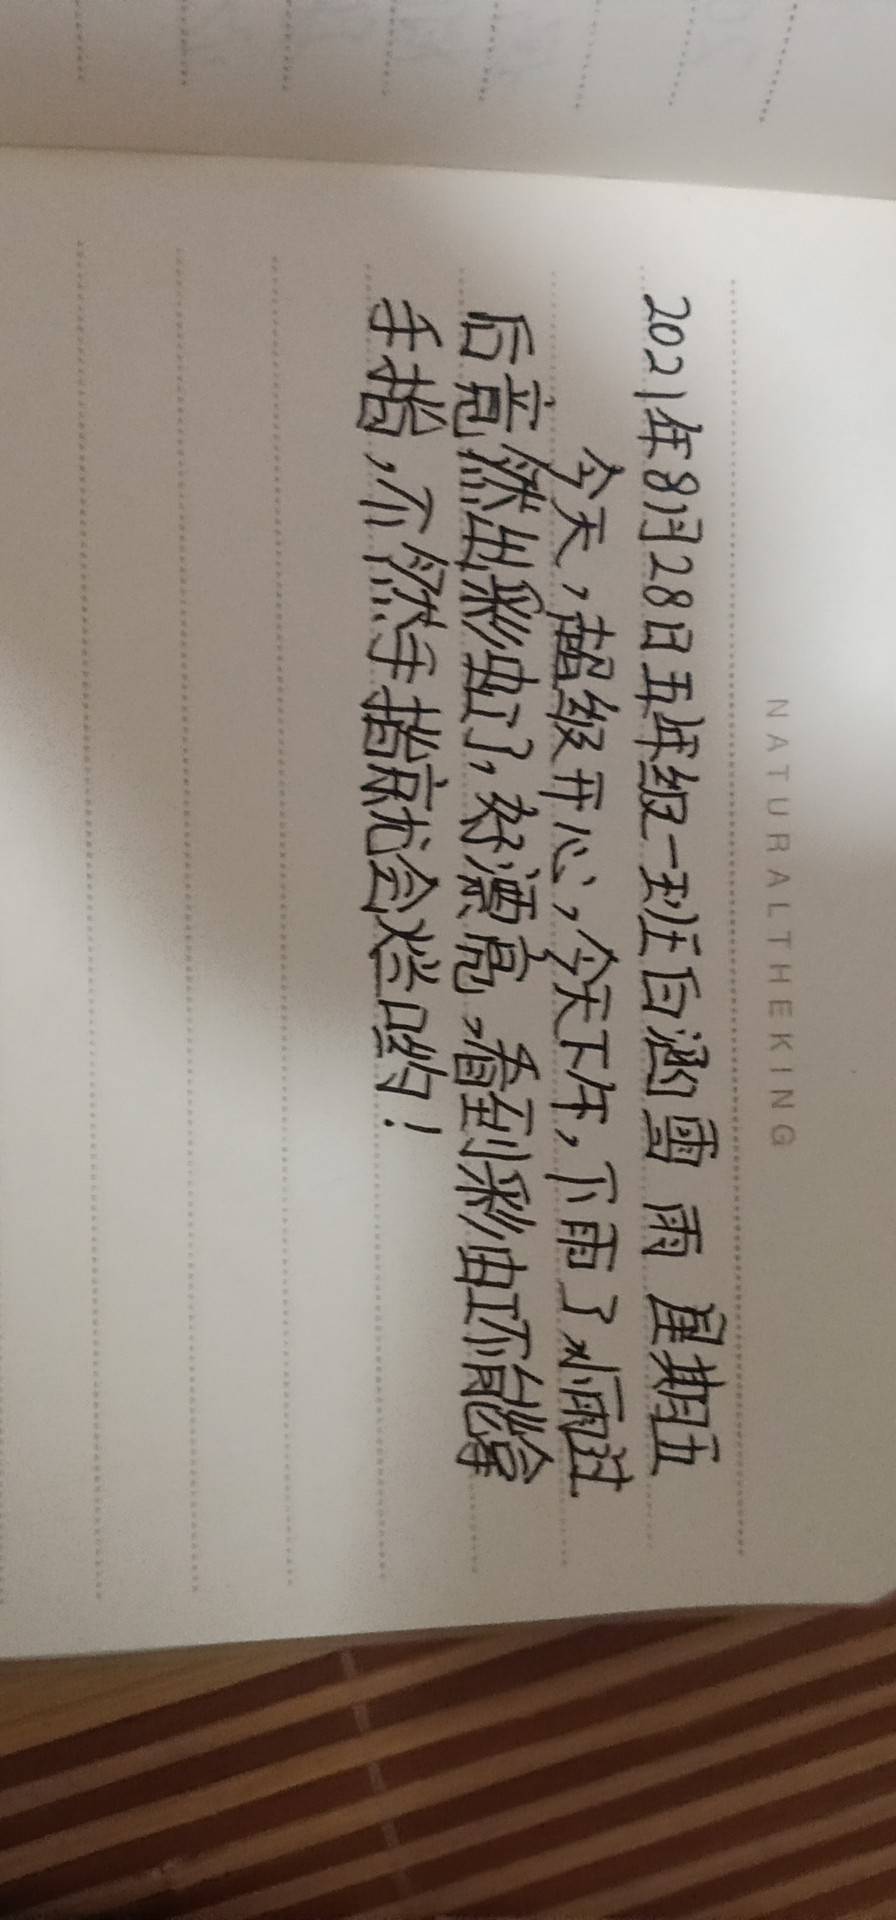 NATURALTHEKING
2021年8月28日五年级一班白涵雪 雨 星期五
今天,超级开心,今天下午,下雨了小雨过
后竟然出彩虹了,好漂亮,看到彩虹不能拿
手指,不然手指就会烂的!